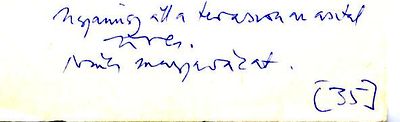 Ugyanúgy áll a teraszon az asztal
üres.
Nincs magyarázat.
[35]